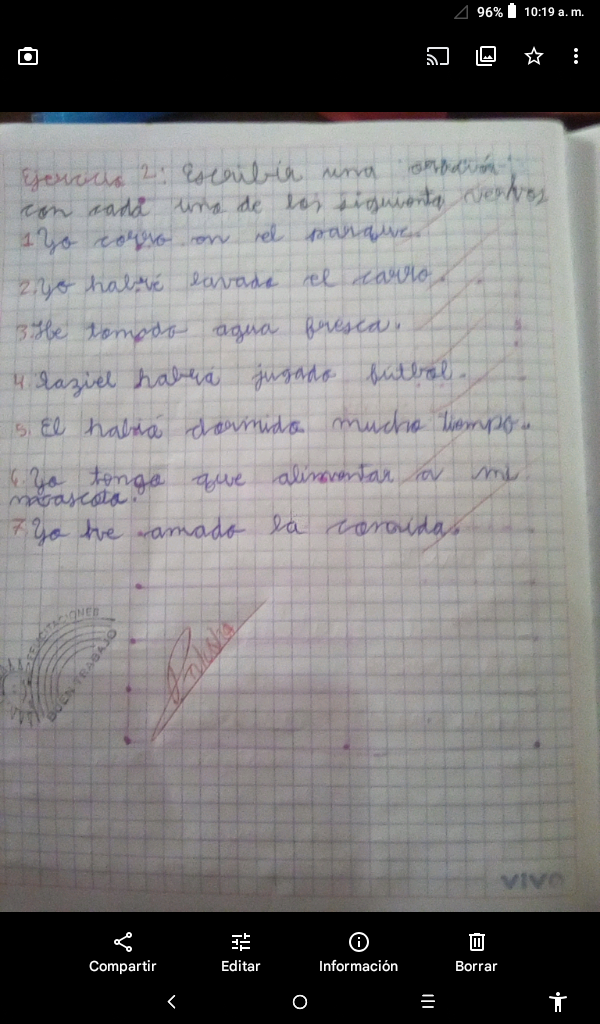 96% 10:19 a. m.
Ejercicio 2: Escribir una oración
con cada una de los siguiente verbos
1. Yo corro en el parque.
2. Yo habré lavado el carro.
3. He tomado agua fresca.
4. Raziel habrá jugado fútbol.
5. El habrá dormido mucho tiempo.
6. Yo tengo que alimentar a mi
mascota.
7. Yo he amado la comida.
FELICITACIONES
BUEN TRABAJO
VIVO
Compartir Editar Información Borrar